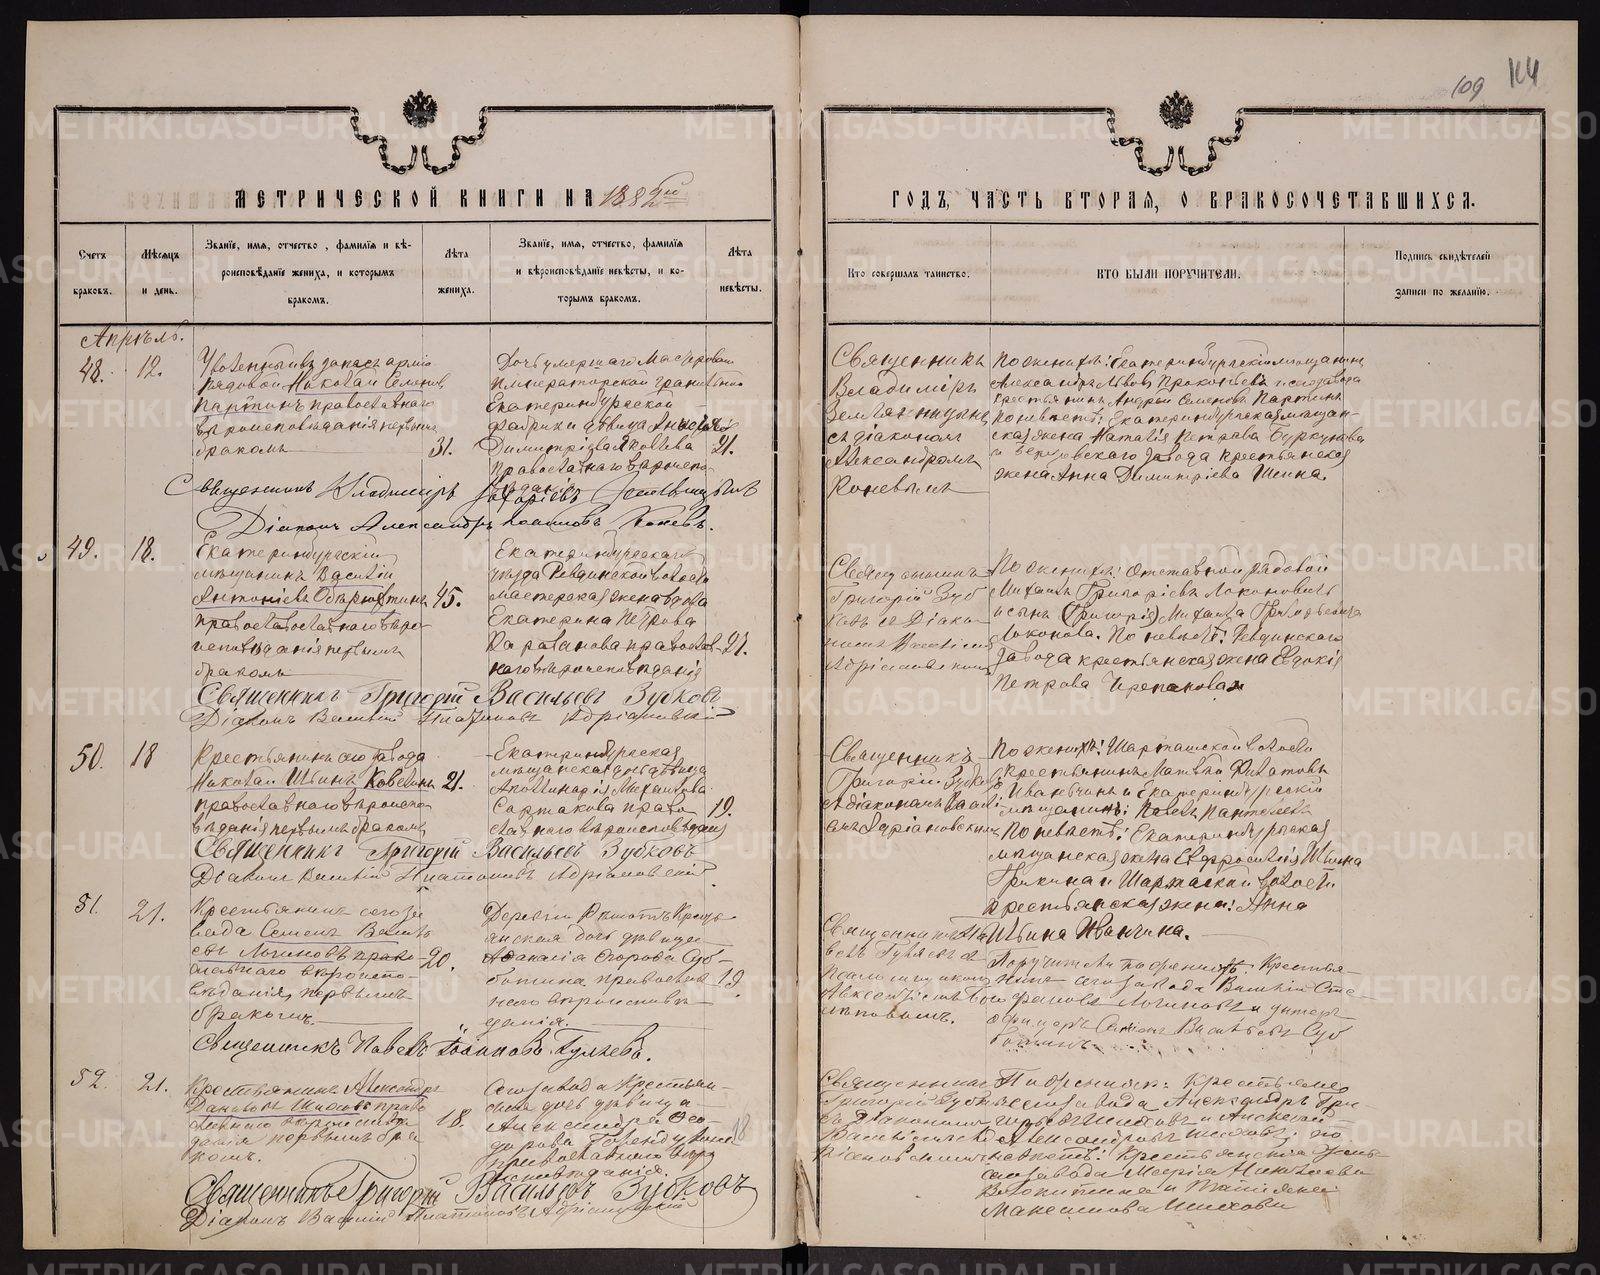 109 114
МЕТРИЧЕСКОЙ КНИГИ НА 1882й
ГОДЪ, ЧАСТЬ ВТОРАЯ, О БРАКОСОЧЕТАВШИХСЯ.
Счетъ браковъ.
Мѣсяцъ и день.
Званіе, имя, отчество, фамилія и вѣ-
роисповѣданіе жениха, и которымъ
бракомъ.
Лѣта
жениха.
Званіе, имя, отчество, фамилія
и вѣроисповѣданіе невѣсты, и ко-
торымъ бракомъ.
Лѣта
невѣсты.
Кто совершалъ таинство.
КТО БЫЛИ ПОРУЧИТЕЛИ.
Подпись свидѣтелей
записи по желанію.
Апрѣль.
48. 12.
Уволенный въ запасъ арміи
рядовой Николай Семеновъ
Партинъ православнаго
вѣроисповѣданія первымъ
бракомъ
31.
Дочь умершаго Мастероваго
Императорской гранильной
Екатеринбургской
фабрики девица
Димитріева Яковлева
православнаго вѣроиспо-
вѣданія
21.
Священникъ
Владиміръ
Земляницынъ
съ діакономъ
Александромъ
Коневымъ
По женихѣ: Екатеринбургскій мѣщанинъ
Александръ Львовъ Прокопьевъ и сего завода
крестьянинъ Андрей Семеновъ Партинъ
По невѣстѣ: Екатеринбургская мѣщан-
ская жена Наталія Петрова Буркунова
и Березовскаго завода крестьянская
жена Анна Димитріева
Священникъ Владиміръ Земляницынъ
Діаконъ Александръ Іоанновъ Коневъ.
49. 18.
Екатеринбургскій
мѣщанинъ Василій
Антоніевъ Обѣрюхтинъ
православнаго вѣро-
исповѣданія первымъ
бракомъ
45.
Екатеринбургскаго
уѣзда Ревдинской волости
мастерская жена вдова
Екатерина Петрова
православ-
наго вѣроисповѣданія
27.
Священникъ
Григорій Зуб
ковъ съ Діако-
номъ Василіемъ
Адріановскимъ
По женихѣ: Отставной рядовой
Михаилъ Григорьевъ Локоновъ
и сынъ (Григорія) Михаила Григорьевича
Локонова. По невѣстѣ: Ревдинскаго
завода крестьянская жена Евдокія
Петрова Черепанова
Священникъ Григорій Васильевъ Зубковъ
Діаконъ Василій Платоновъ Адріановскій
50. 18
Крестьянинъ сего завода
Николай Ильинъ Ковелинъ
православнаго вѣроиспо-
вѣданія первымъ бракомъ
21.
Екатеринбургская
мѣщанская дочь дѣвица
Аполлинарія Михайлова
Сартакова право
славнаго вѣроисповѣданія
19.
Священникъ
Григорій Зубковъ
съ діакономъ Васи
емъ Адріановскимъ
По женихѣ: Шарташской волости
крестьянинъ Матвѣй Филатовъ
Иванчинъ и Екатеринбургскій
мѣщанинъ: Павелъ Пантелеевъ
По невѣстѣ: Екатеринбургская
мѣщанская жена Евфросинія Ильина
и Шарташской волости
крестьянская жена: Анна
Ильина Иванчина.
Священникъ Григорій Васильевъ Зубковъ
Діаконъ Василій Платоновъ Адріановскій
51. 21.
Крестьянинъ сего за
вода Семенъ Василь
евъ Логиновъ право-
славнаго вѣроиспо-
вѣданія, первымъ
бракомъ.
20.
Деревни Рѣшетъ Кресть
янская дочь дѣвица
Суб-
ботина православ
наго вѣроисповѣ-
данія.
19.
Священникъ Па
велъ Гуляевъ съ
псаломщикомъ
Поручители по женихѣ: Крестья-
нине сего завода Василій Сте-
фановъ Логиновъ и унтеръ
офицеръ Семенъ Васильевъ Суб
ботинъ.
Священникъ Павелъ Іоанновъ Гуляевъ.
52. 21.
Крестьянинъ Александръ
Даниловъ Шиловъ право
славнаго вѣроисповѣ
данія первымъ бра
комъ.
18.
Сего завода Крестьян-
ская дочь дѣвица
Александра Ѳео
дорова
православнаго вѣро
исповѣданія.
18
Священникъ
Григорій Зубковъ
съ Діакономъ
Василіемъ Ад
ріановскимъ
По женихѣ: Крестьяне
сего завода Александръ Гри
горьевъ Шиловъ и Алексѣй
Александровъ Шиловъ; по
невѣстѣ: Крестьянскія жены
сего завода Марія Николаева
и Татіана
Максимова Шилова
Священникъ Григорій Васильевъ Зубковъ
Діаконъ Василій Платоновъ Адріановскій
METRIKI.GASO-URAL.RU